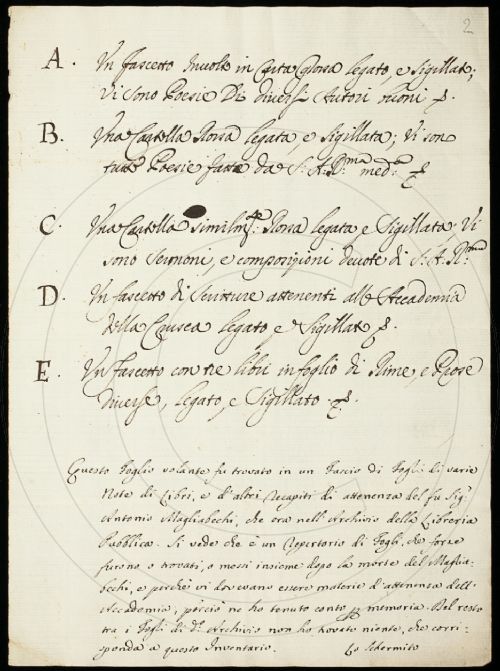 2
A. Un fascetto Involto in Carta Rossa legato e Sigillato;
Vi sono Poesie Di diversi Autori buoni
B. Una Cartella Rossa legata e Sigillata; Vi son
tutte Poesie fatte da S. A. R.ma med.a
C. Una Cartella similm.te Rossa legata e Sigillata; Vi
sono Sermoni, e composizioni devote di S. A. R.ma
D. Un fascetto di Scritture attenenti all' Accademia
della Crusca legato, e Sigillato
E. Un fascetto con tre libri in foglio di Rime, e Prose
diverse, legato, e Sigillato.
Questo foglio volante fu trovato in un Fascio di Fogli di varie
Note di Libri, e d'altri Recapiti di attenenza del fu Sig.
Antonio Magliabechi, che era nell'Archivio della Libreria
Pubblica. Si vede che è un Repertorio di Fogli, che forse
furono o trovati, o messi insieme dopo la morte del Maglia-
bechi, e perchè vi dovevano essere materie d'attenenza dell'
Accademia, perciò ne ho tenuto conto p memoria. Del resto
tra i Fogli di d.o Archivio non ho trovato niente, che corri-
sponda a questo Inventario. Lo Schermito